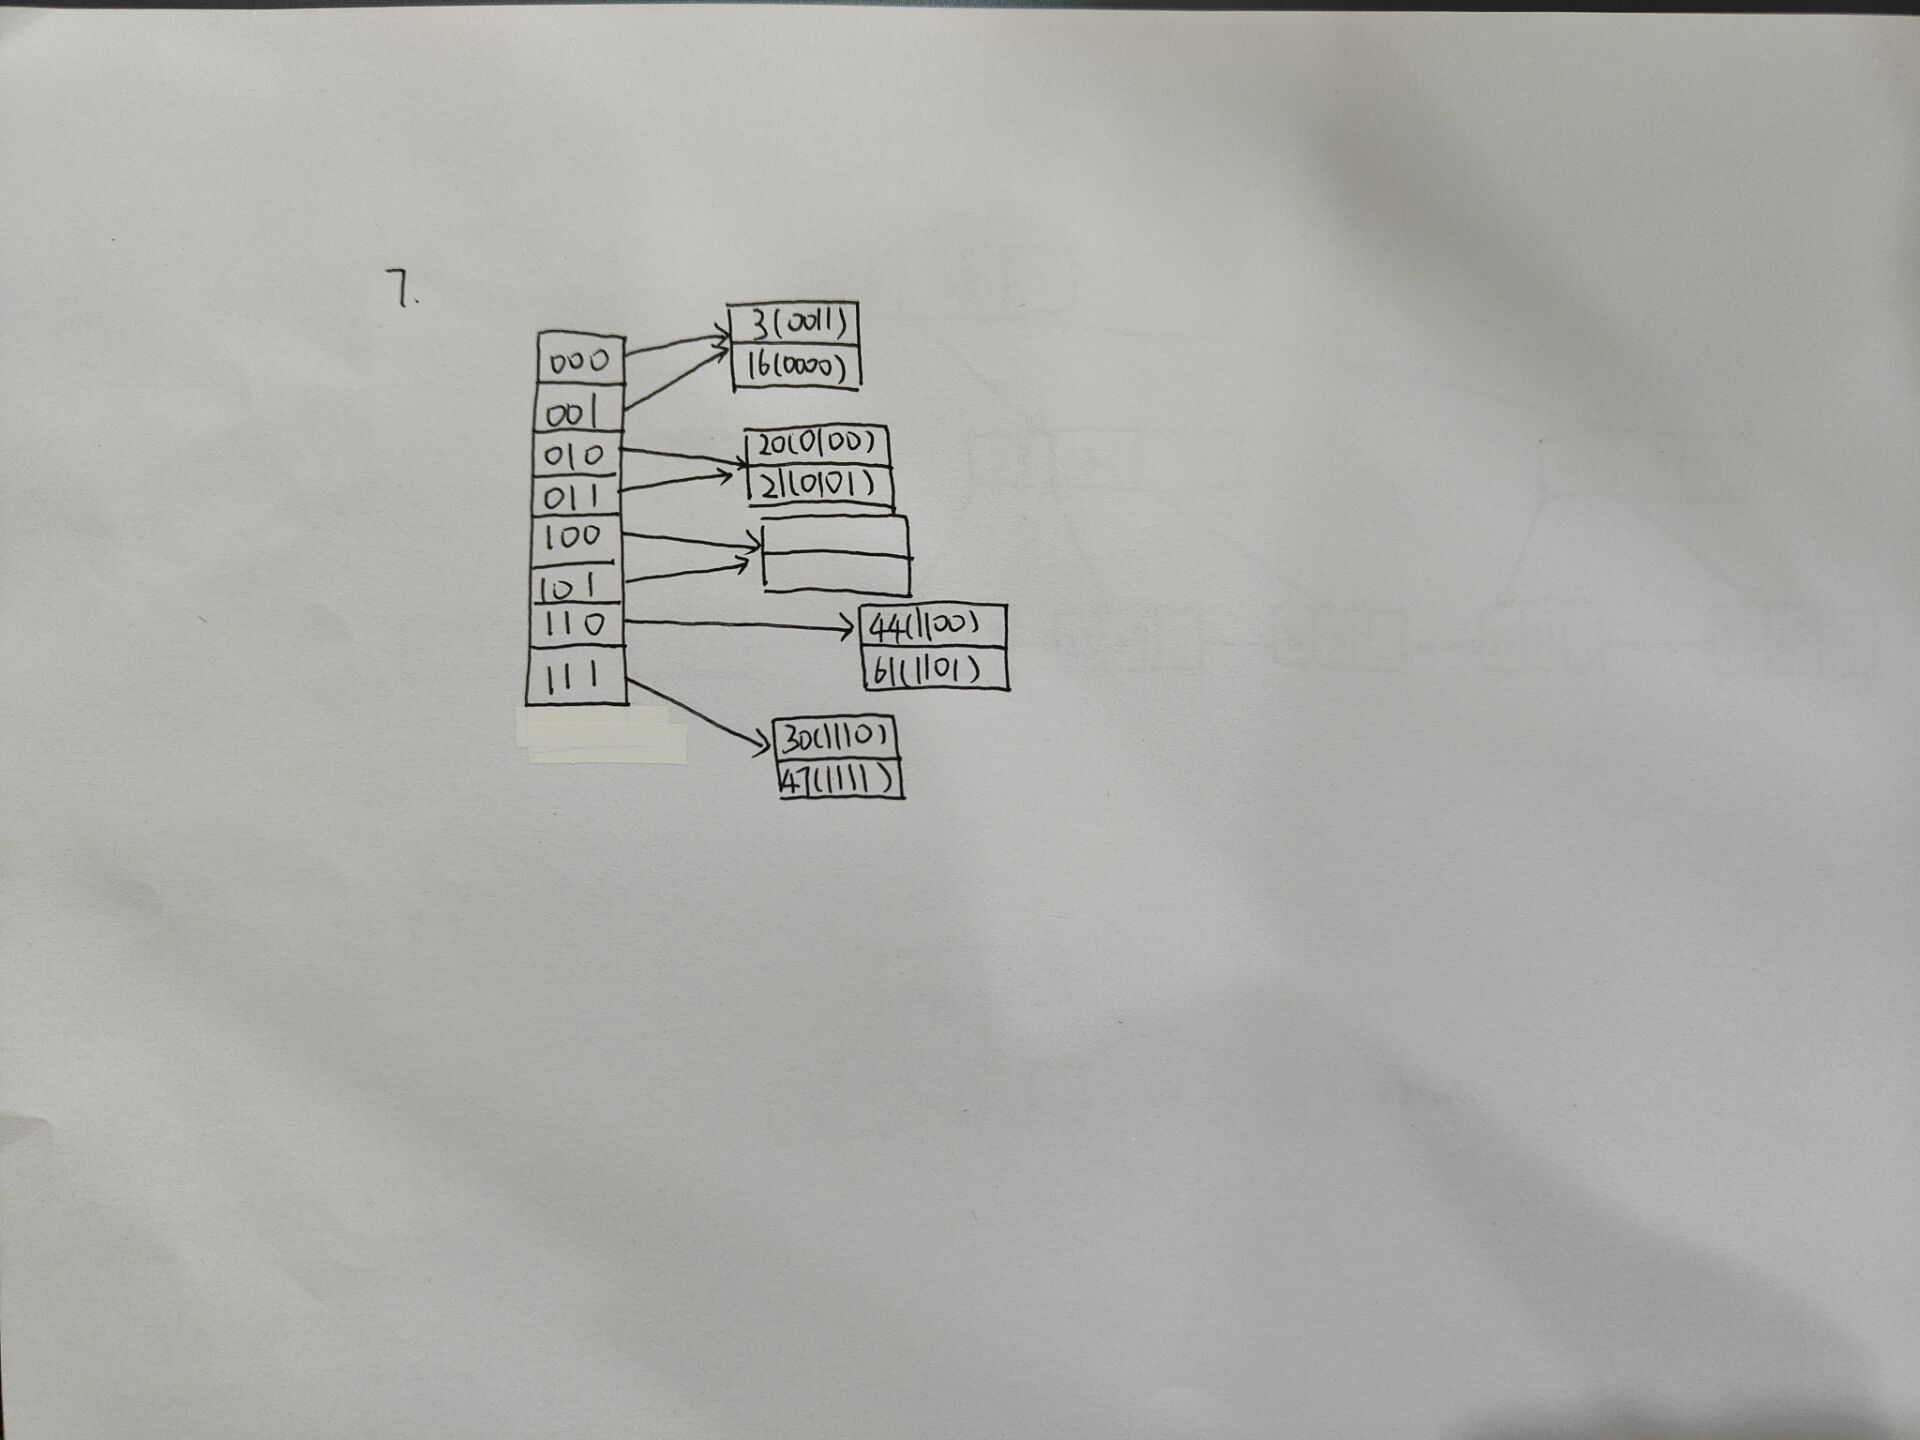 7.
000
001
010
011
100
101
110
111
3(0011)
16(0000)
20(0100)
21(0101)
44(1100)
61(1101)
30(1110)
47(1111)